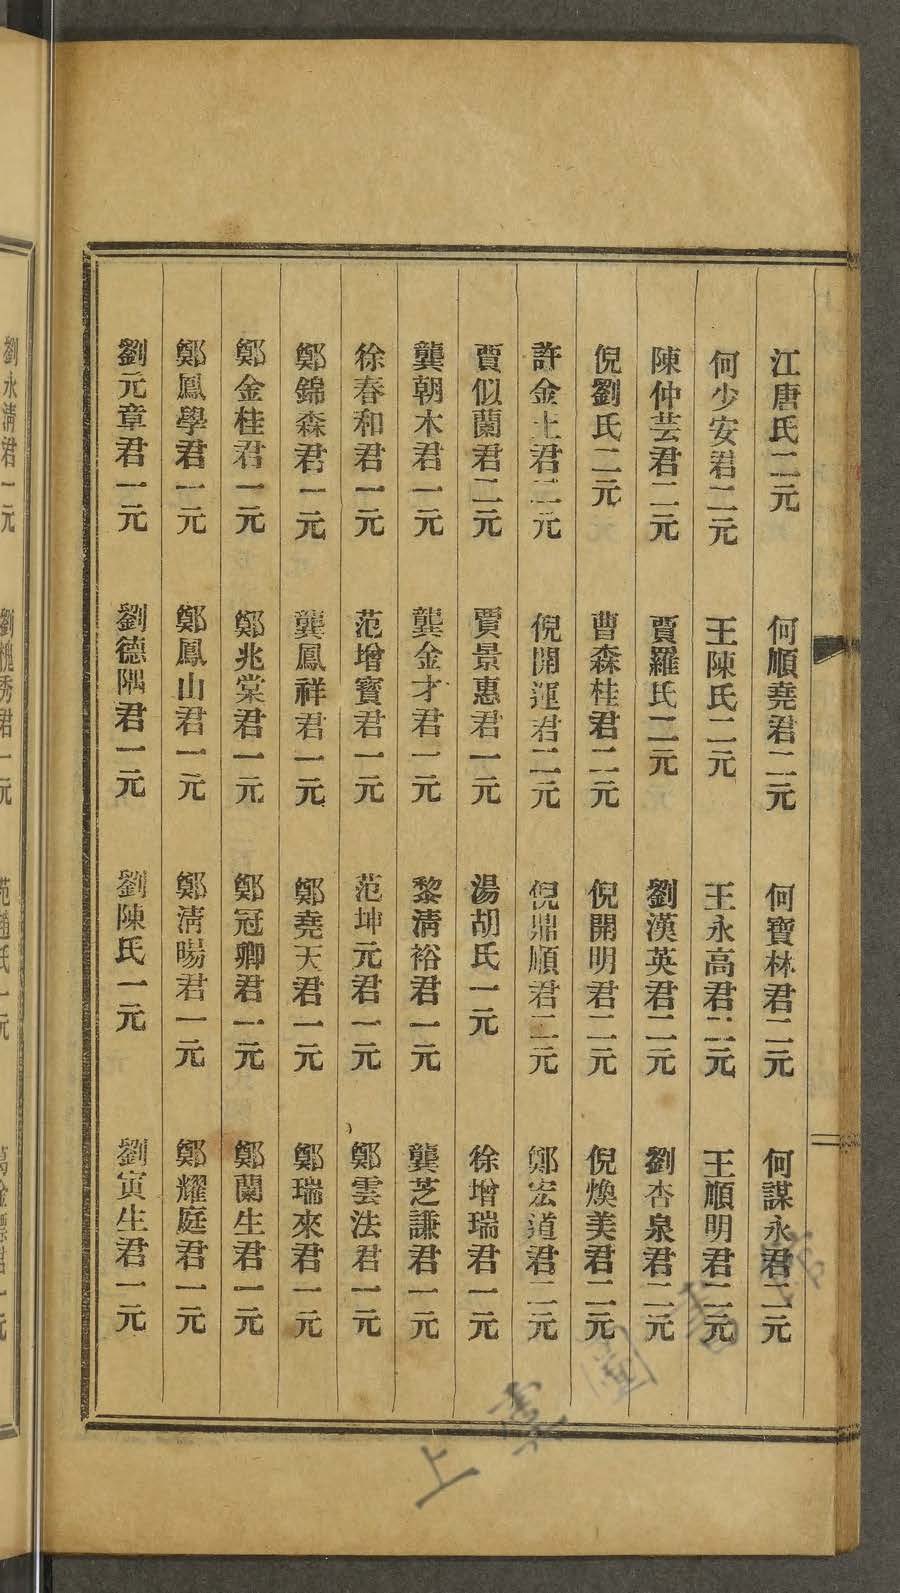 江唐氏二元　何順堯君二元　何寶林君二元　何謀永君二元
何少安君二元　王陳氏二元　王永高君二元　王順明君二元
陳仲芸君二元　賈羅氏二元　劉漢英君二元　劉杏泉君二元
倪劉氏二元　曹森桂君二元　倪開明君二元　倪煥美君二元
許金土君二元　倪開運君二元　倪鼎順君二元　鄭宏道君二元
賈似蘭君二元　賈景惠君一元　湯胡氏一元　徐增瑞君一元
龔朝木君一元　龔金才君一元　黎淸裕君一元　龔芝謙君一元
徐春和君一元　范增寶君一元　范坤元君一元　鄭雲法君一元
鄭錦森君一元　龔鳳祥君一元　鄭堯天君一元　鄭瑞來君一元
鄭金桂君一元　鄭兆棠君一元　鄭冠卿君一元　鄭蘭生君一元
鄭鳳學君一元　鄭鳳山君一元　鄭淸暘君一元　鄭耀庭君一元
劉元章君一元　劉德隅君一元　劉陳氏一元　劉寅生君一元
劉永淸君一元　劉槐秀君一元　范趙氏一元
上圖書館